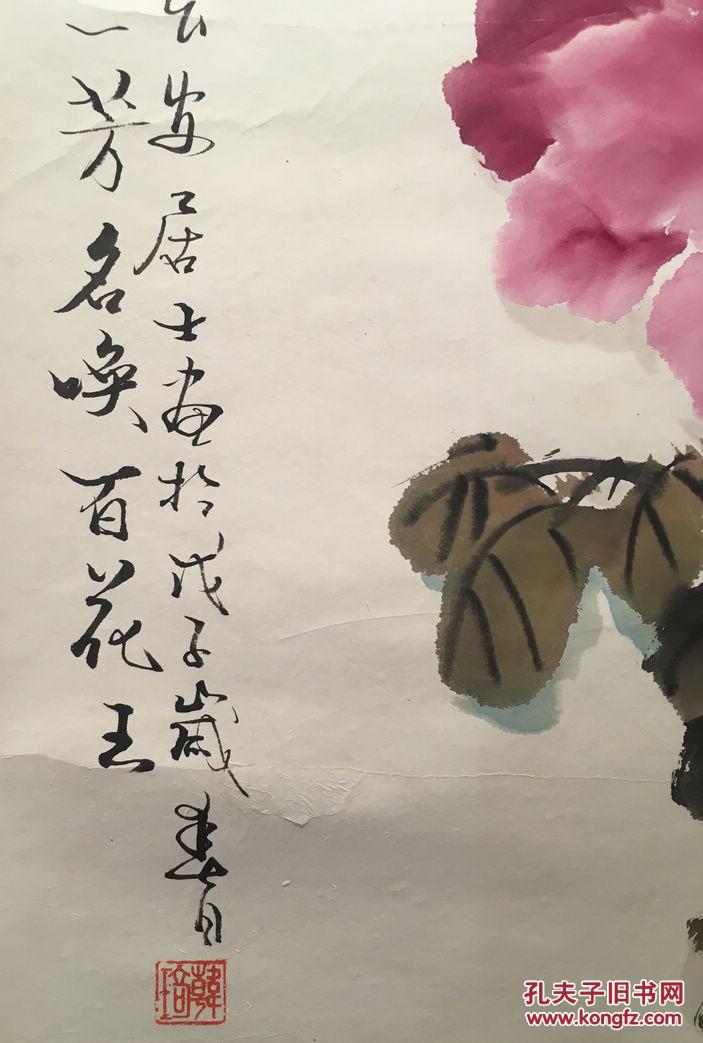 一芳名喚百花王
安居士畫於戊子歲春月
韓培
孔夫子旧书网
www.kongfz.com